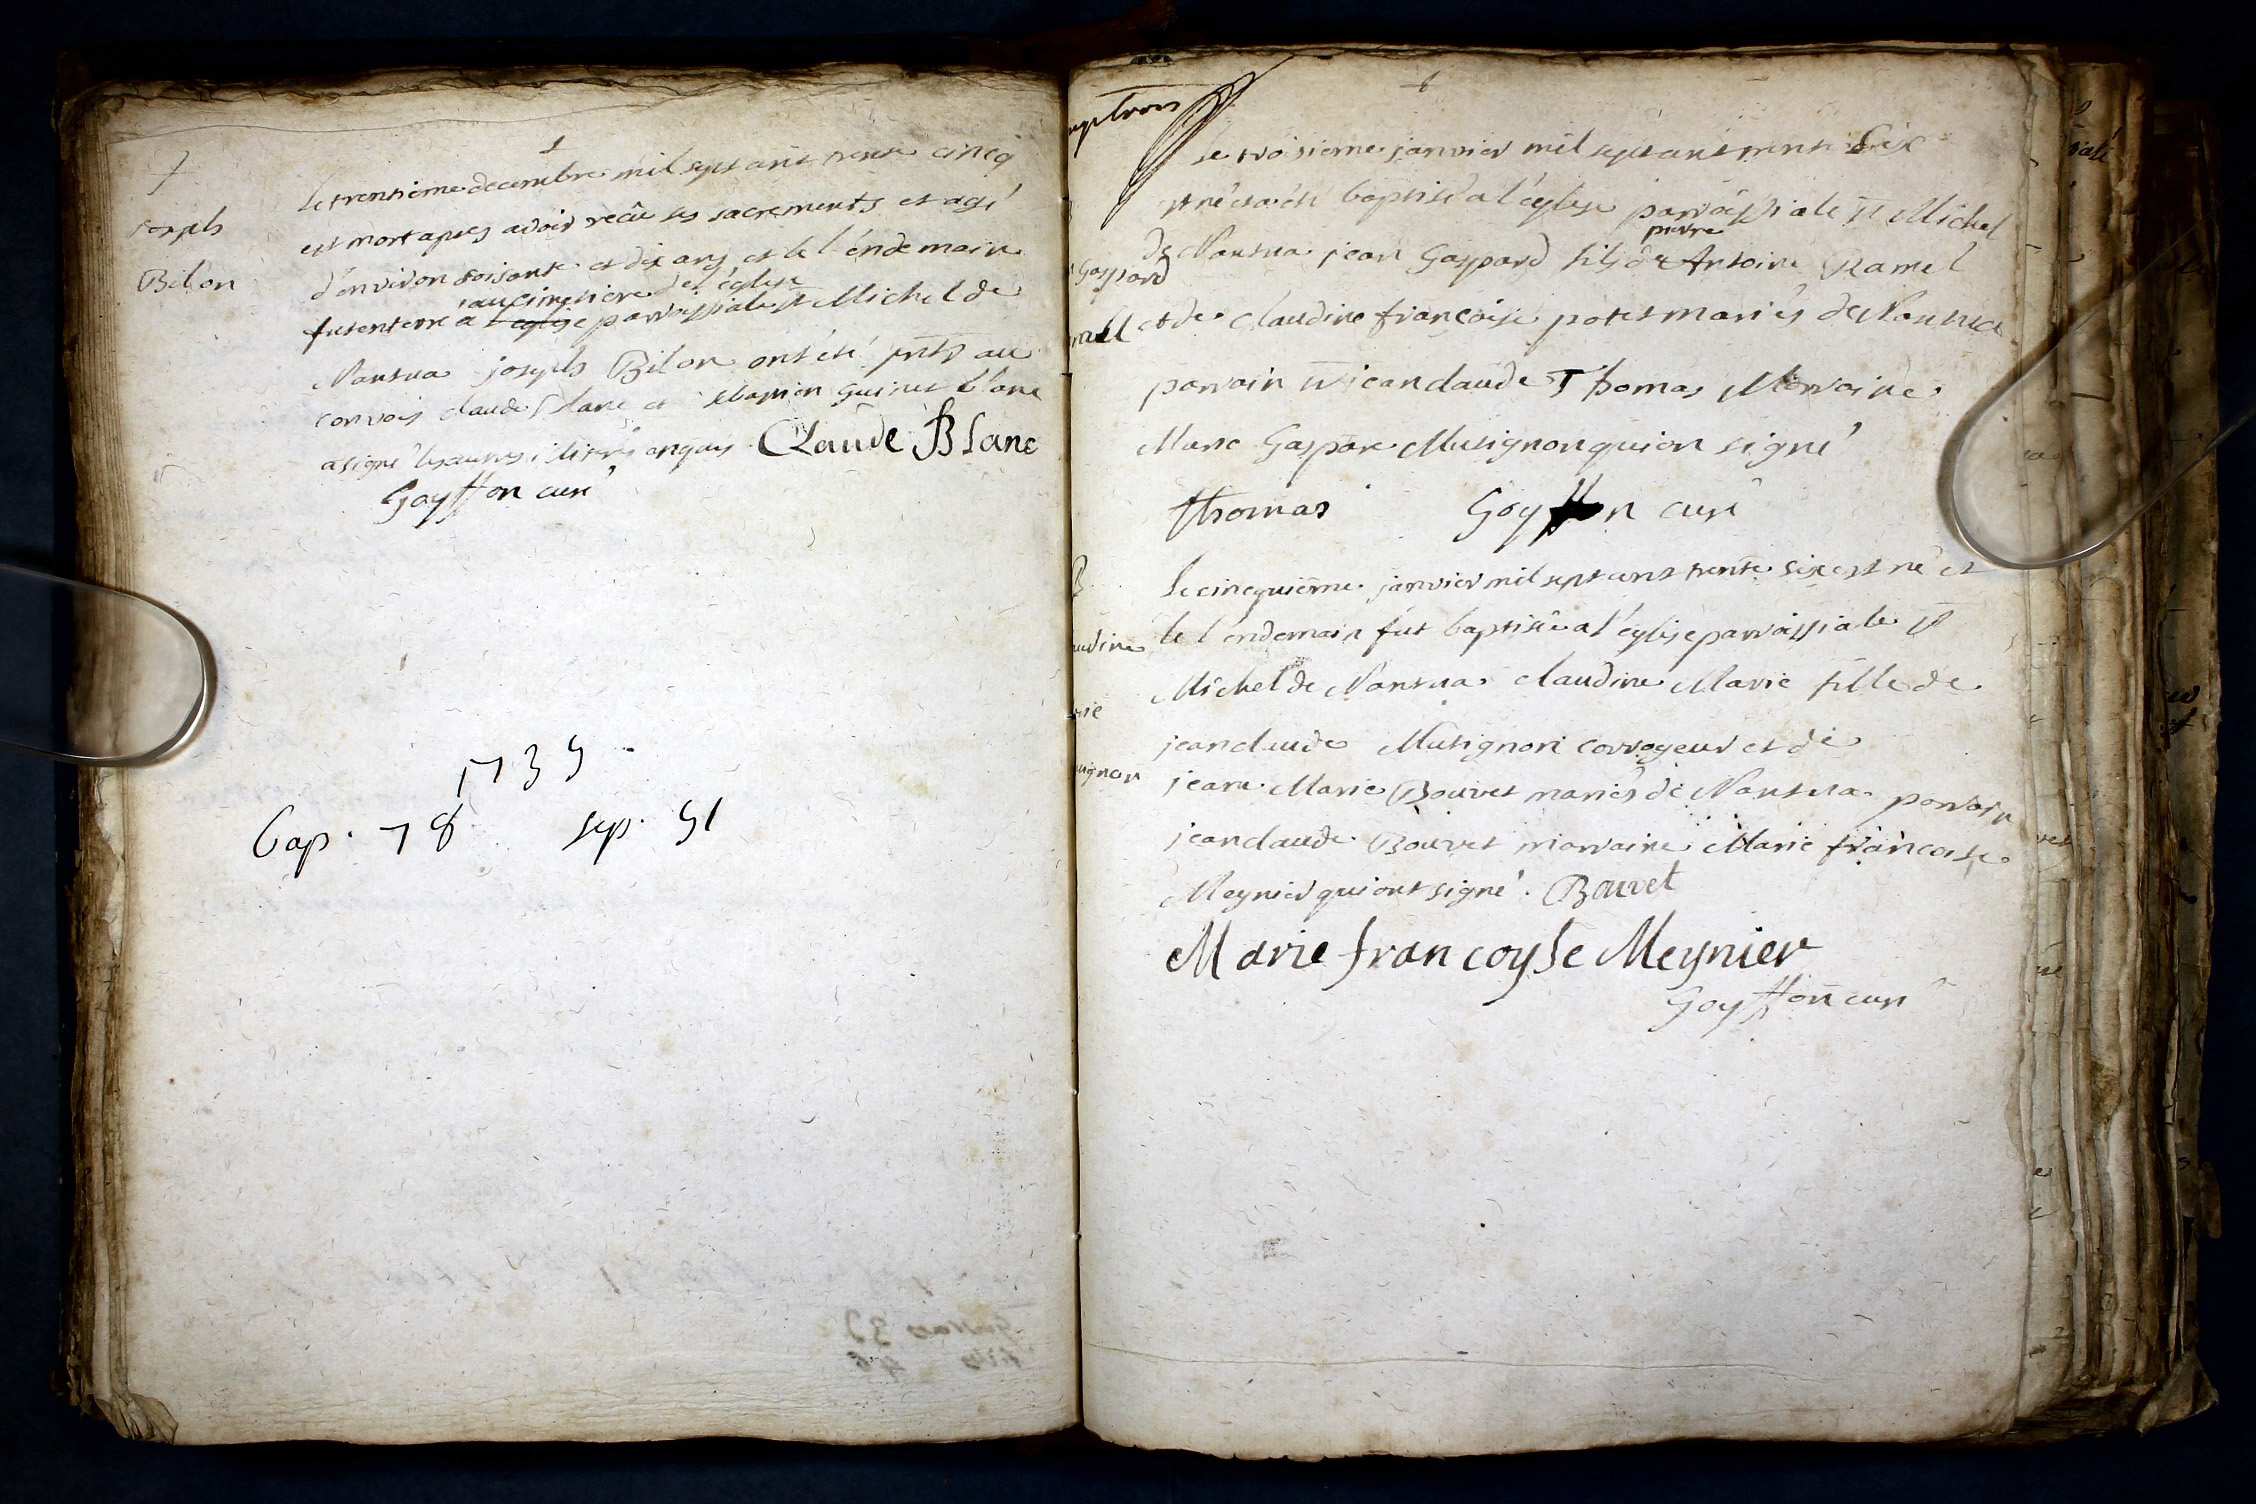 †
Joseph
Bilon
Le trensieme decembre mil sept cent trente cincq
est mort apres avoir recüe ses sacrements et agé
d'environ soisante et dix ans et le l'endemain
au cimetiere de l'église
fut enterré a l'eglise parroissiale st Michel de
Nantua joseph Bilon ont été pnts au
convois claude blanc et sebastien guinet blanc
a signé les autres illiterés enquis. Claude Blanc
Goyffon curé
1735
bap. 78 sep. 51
le troisieme janvier mil sept cent trente Six
est né et a été baptisé a l'église parroissiale st Michel
pierre
de Nantua jean Gaspard fils de Antoine Ramel
Gaspard
et de claudine françoise potet mariés de Nantua
parrain jean claude Thomas Marraine
Marie Gaspare Mutignon qui on signé
Thomas Goyffon curé
B
Le cinequieme janvier mil sept cent trente six est né et
udine
le l'endemain fut baptisée a l'église parroissiale st
Michel de Nantua claudine Marie fille de
rie
jean claude Mutignon corroyeur et de
ignon
jeane Marie Bouvet mariés de Nantua parrain
jean claude Bouvet marraine Marie françoise
Meynier qui ont signé. Bouvet
Marie francoyse Meynier
Goyffon curé